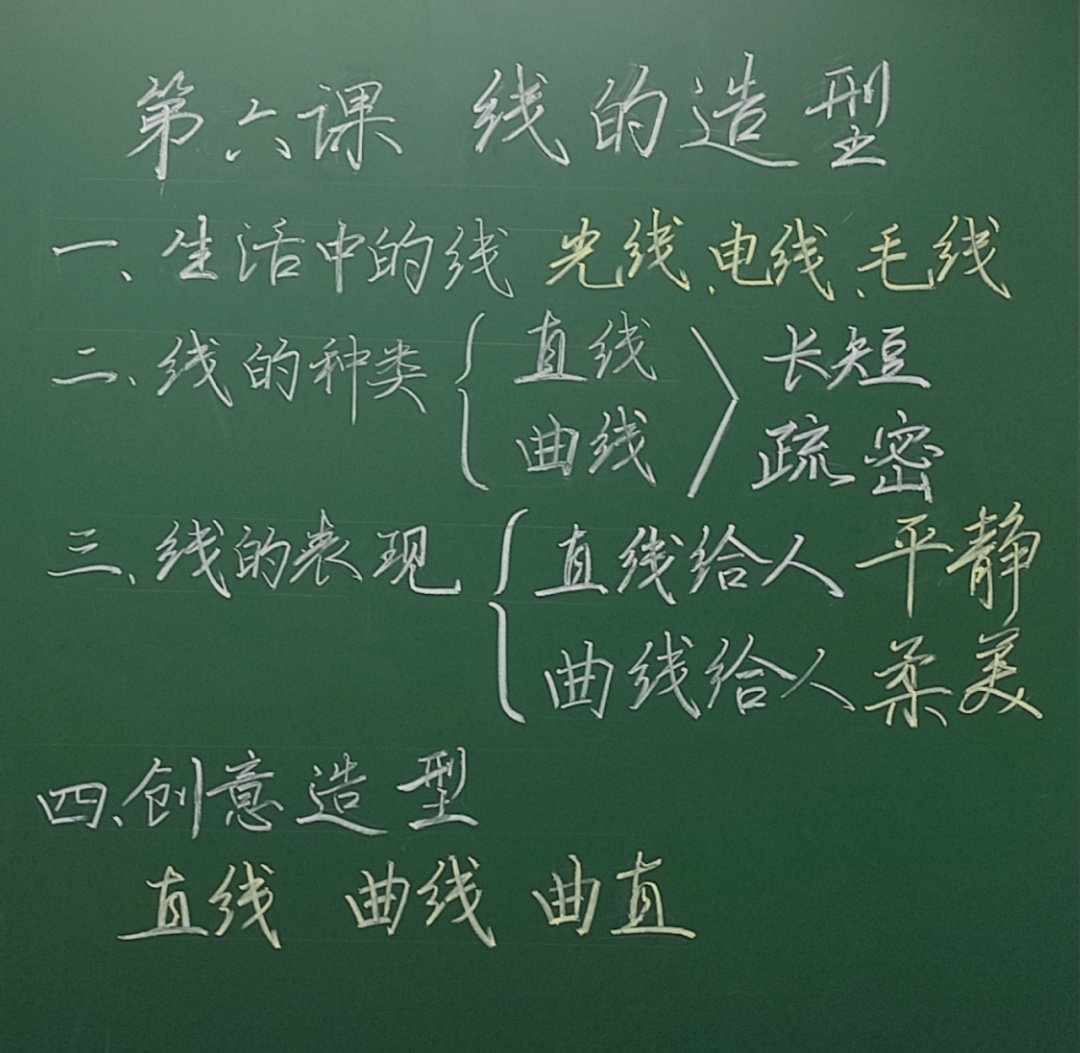 第六课 线的造型
一、生活中的线 光线、电线、毛线
二、线的种类 { 直线 〉 长短
曲线 疏密
三、线的表现 { 直线给人平静
曲线给人柔美
四、创意造型
直线 曲线 曲直